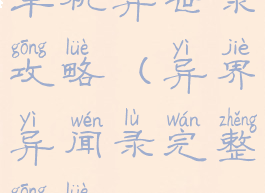 gōng lüè yì jiè
攻略（异界
yì wén lù wán zhěng
异闻录完整
gōng lüè